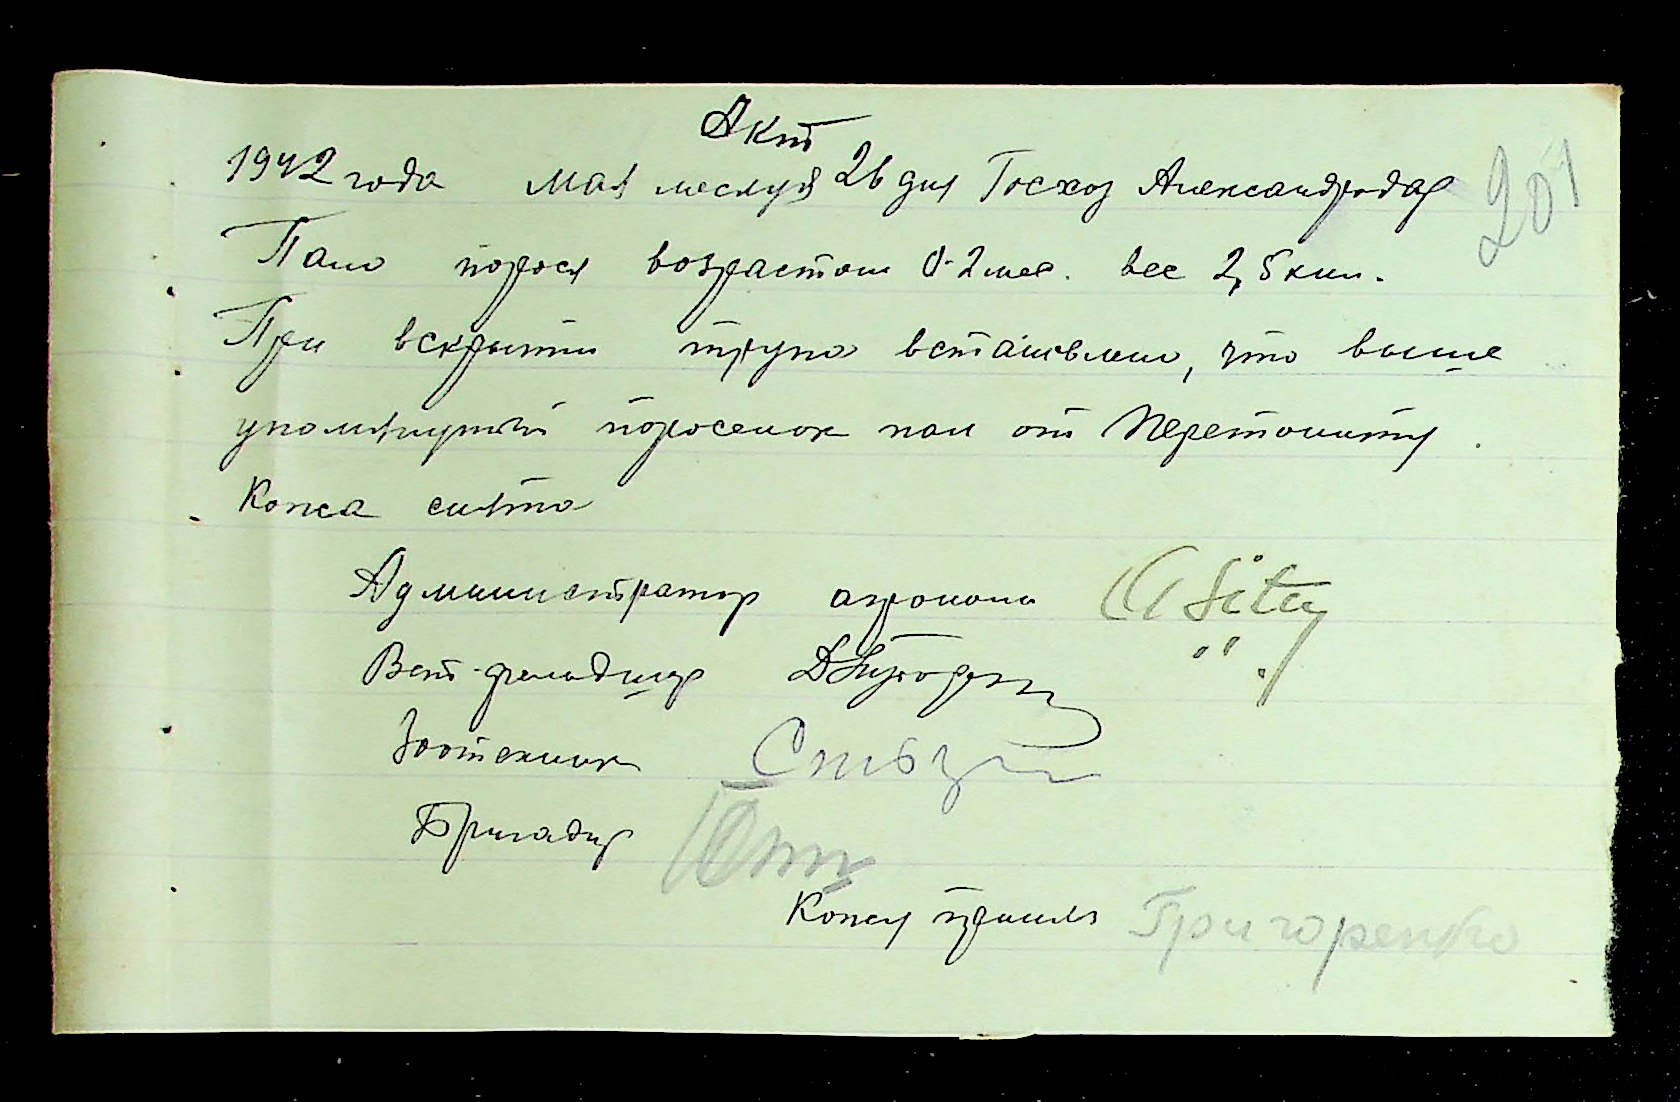 Акт
1942 года мая месяця 26 дня Госхоз Александродар
201
Пало порося возрастом 0-2 мес. вес 2,5 кил.
При вскрытии трупа встановлено, что выше
упомянутый поросенок пал от Перетониту.
Кожа снята
Администратор агроном
Вет-фельдшер
Зоотехник
Бригадир
Кожу принял Григоренко